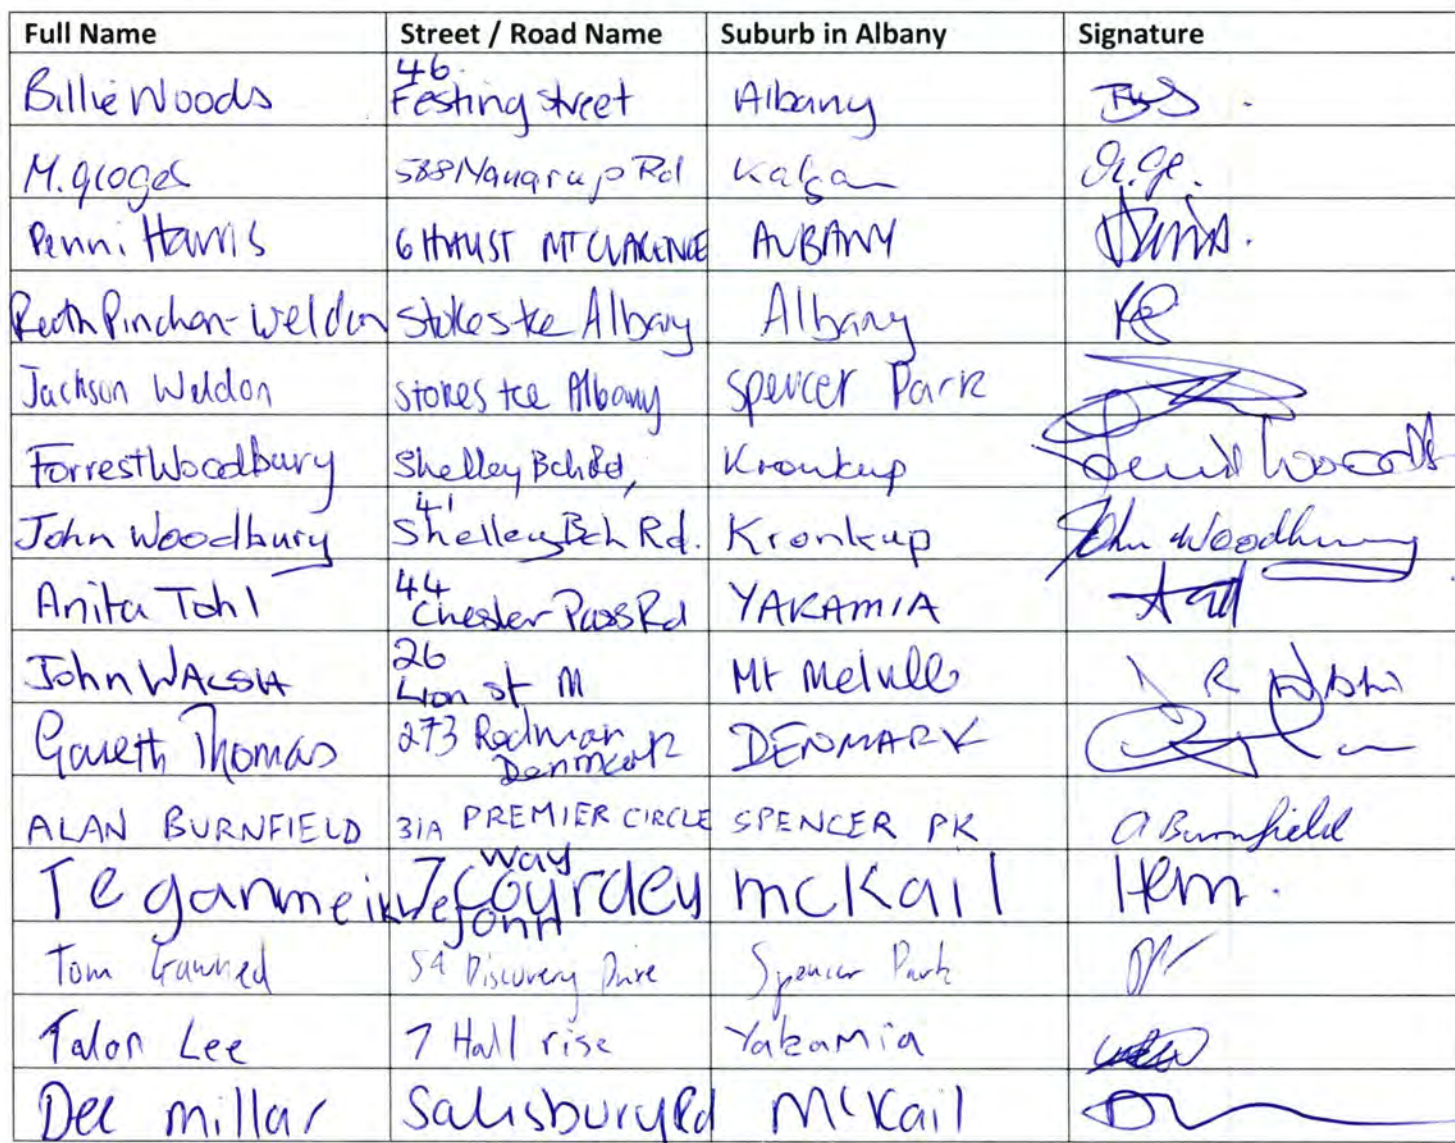 Full Name Street / Road Name Suburb in Albany Signature
46
Billie Woods Festing Street Albany
M. groges 588 Nanarup Rd Kalgan
Penni Harris 6 HVMUST MT CLARENCE ALBANY
Ruth Pinchon-Weldon Stokes tce Albany Albany
Jackson Weldon stokes tce Albany Spencer Park
Forrest Woodbury Shelley Bch Rd, Kronkup
41
John Woodbury Shelley Bch Rd. Kronkup John Woodbury
44
Anita Tohl Chester Pass Rd YAKAMIA
26
John WALSH Lion st M Mt Melville
Gareth Thomas 273 Redman DENMARK
Denmark
ALAN BURNFIELD 31A PREMIER CIRCLE SPENCER PK A Burnfield
way
Tegan 7 McKail
John
Tom 54 Discovery Drive Spencer Park
Talon Lee 7 Hall rise Yakamia
Dee millar Salisbury Rd McKail